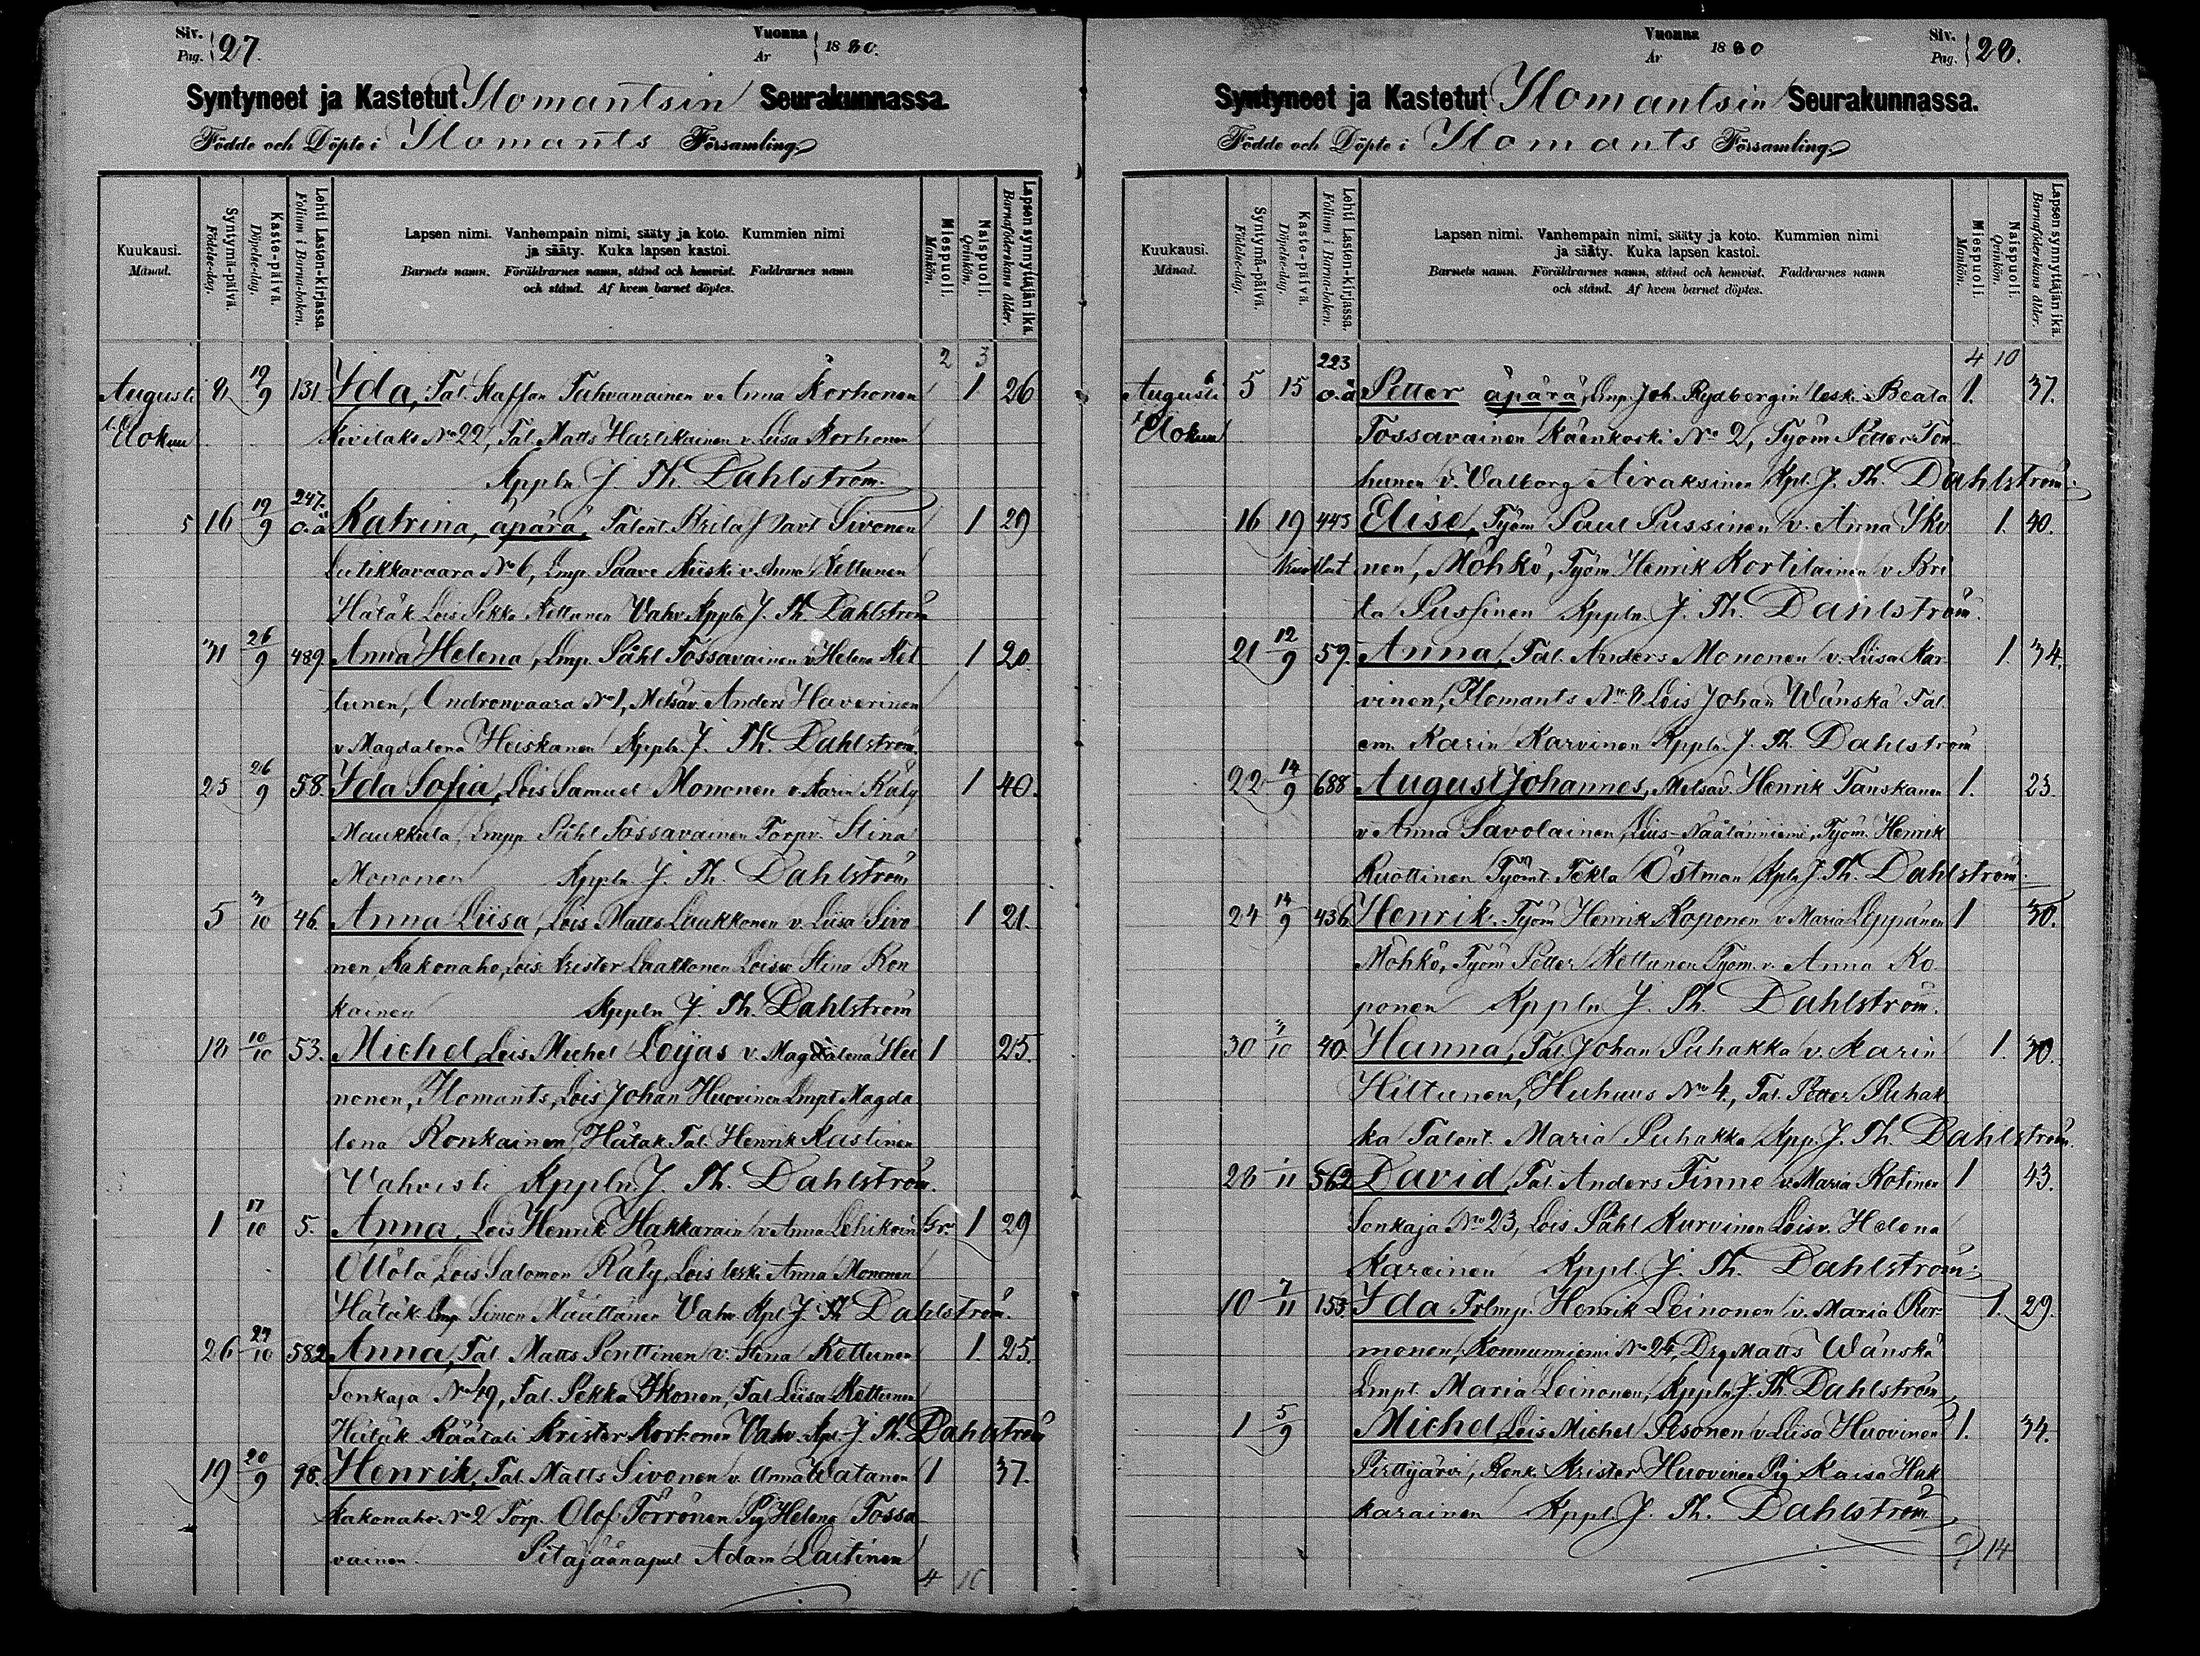 Siv. Pag. 27. Vuonna År 1880.
Syntyneet ja Kastetut Ilomantsin Seurakunnassa.
Födde och Döpte i Ilomants Församling.
Kuukausi. Månad.
Syntymä-päivä. Födelse-dag.
Kaste-päivä. Döpelse-dag.
Lehti Lasten-kirjassa. Folium i Barna-boken.
Lapsen nimi. Vanhempain nimi, sääty ja koto. Kummien nimi
ja sääty. Kuka lapsen kastoi.
Barnets namn. Föräldrarnes namn, stånd och hemvist. Faddrarnes namn
och stånd. Af hvem barnet döptes.
Miespuoli. Mankön.
Naispuoli. Qvinkön.
Lapsen synnyttäjän ikä. Barnaföderskans ålder.
2 3
Augusti 8 19/9 131 Ida, Tal. Staffan Tahvanainen v. Anna Korhonen 1 26
l. Elokuu Kivilaks No 22, Tal. Matts Hartikainen v. Liisa Korhonen
Kppln J. Th. Dahlström.
5 16 19/9 247. o.ä Katrina, äpärä, Talent. Brita Sivonen 1 29
Lutikkavaara No 6, Lmp. Paave Kiiski v. Anna Kettunen
Hätäk. Lois Pekka Kettunen Vahv. Kppln J. Th. Dahlström
31 26/9 489 Anna Helena, Lmp. Påhl Tossavainen v. Helena Ket 1 20.
tunen, Ondronvaara No 1, Metsäv. Anders Haverinen
v. Magdalena Heiskanen Kppln J. Th. Dahlström.
25 26/9 58 Ida Sofia, Lois Samuel Mononen v. Karin Räty 1 40.
Maukkula, Lmpp. Påhl Tossavainen Torpv. Stina
Mononen Kppln J. Th. Dahlström
5 3/10 46. Anna Liisa, Lois Matts Laakkonen v. Liisa Sivo 1 21.
nen, Kakonaho, Lois Krister Laakkonen Loisv. Stina Ron
kainen Kppln J. Th. Dahlström
18 10/10 53. Michel, Lois Michel Loijas v. Magdalena Hei 1 25.
nonen, Ilomants, Lois Johan Huovinen Lmpt Magda
lena Ronkainen Hätäk Tal. Henrik Kastinen
Vahvisti Kppln J. Th. Dahlström.
1 17/10 5. Anna, Lois Henrik Hakkarain v. Anna Lehikoin 1 29
Ollola, Lois Salomon Räty, Lois leski Anna Mononen
Hätäk Lmp. Simon Määttänen Vahv. Kpl J. Th Dahlström.
26 24/10 582 Anna, Tal. Matts Penttinen v. Stina Kettunen 1. 25.
Sonkaja No 49, Tal. Pekka Ikonen, Tal. Liisa Kettunen
Hätäk Räätäli Krister Korhonen Vahv. Kpl. J. Th. Dahlström
19 20/9 98. Henrik, Tal. Matts Sivonen v. Anna Watanen 1 37.
Kakonaho No 2 Torp. Olof Törrönen Pig Helena Tossa
vainen. Pitäjäänapul Adam Laitinen
4 10
Vuonna År 1880 Siv. Pag. 28.
Syntyneet ja Kastetut Ilomantsin Seurakunnassa.
Födde och Döpte i Ilomants Församling.
Kuukausi. Månad.
Syntymä-päivä. Födelse-dag.
Kaste-päivä. Döpelse-dag.
Lehti Lasten-kirjassa. Folium i Barna-boken.
Lapsen nimi. Vanhempain nimi, sääty ja koto. Kummien nimi
ja sääty. Kuka lapsen kastoi.
Barnets namn. Föräldrarnes namn, stånd och hemvist. Faddrarnes namn
och stånd. Af hvem barnet döptes.
Miespuoli. Mankön.
Naispuoli. Qvinkön.
Lapsen synnyttäjän ikä. Barnaföderskans ålder.
4 10
Augusti 5 15 223 o.ä Petter äpärä, Lmp. Joh. Rydbergin leski Beata 1. 37.
l. Elokuu Tossavainen Käenkoski No 2, Työm Petter Tom
hunen v. Valborg Airaksinen Kpl. J. Th. Dahlström.
16 19 443 Elise, Työm Paul Pussinen v. Anna Iko 1. 40.
nen, Möhkö, Työm Henrik Kortilainen v. Bri
ta Pussinen Kppln. J. Th. Dahlström.
21 12/9 59. Anna, Tal. Anders Mononen v. Liisa Kar 1. 34.
vinen, Ilomants No 8. Lois Johan Wänskä Tal.
em. Karin Karvinen Kppln. J. Th. Dahlström
22 14/9 688 August Johannes, Metsäv. Henrik Tanskanen 1. 23.
v. Anna Savolainen, Lius-Näätänniemi, Työm. Henrik
Ruottinen Työmt. Tekla Östman Kpln J. Th. Dahlström.
24 14/9 436 Henrik. Työm Henrik Koponen v. Maria Leppänen 1 30.
Möhkö, Työm Petter Kettunen Tyom. v. Anna Ko
ponen Kppln J. Th. Dahlström.
30 3/10 40 Hanna, Tal. Johan Puhakka v. Karin 1. 30.
Hiltunen, Huhuus No 4., Tal. Petter Puhak
ka Talent. Maria Puhakka Kpp. J. Th. Dahlström.
28 1/11 562 David, Tal. Anders Timne v. Maria Kotinen 1 43.
Sonkaja No 23, Lois Påhl Kurvinen Loisv. Helena
Kareinen Kppl. J. Th. Dahlström.
10 7/11 153. Ida Lmp. Henrik Leinonen v. Maria Kor 1. 29.
monen, Konnunniemi No 24, Drg Matts Wänskä
Lmpt. Maria Leinonen, Kppln J. Th. Dahlström
1 5/9 Michel, Lois Michel Pesonen v. Liisa Huovinen 1. 34.
Pirttijärvi, Renk. Krister Huovinen Pig. Kaisa Hak
karainen Kppl. J. Th. Dahlström
9 14